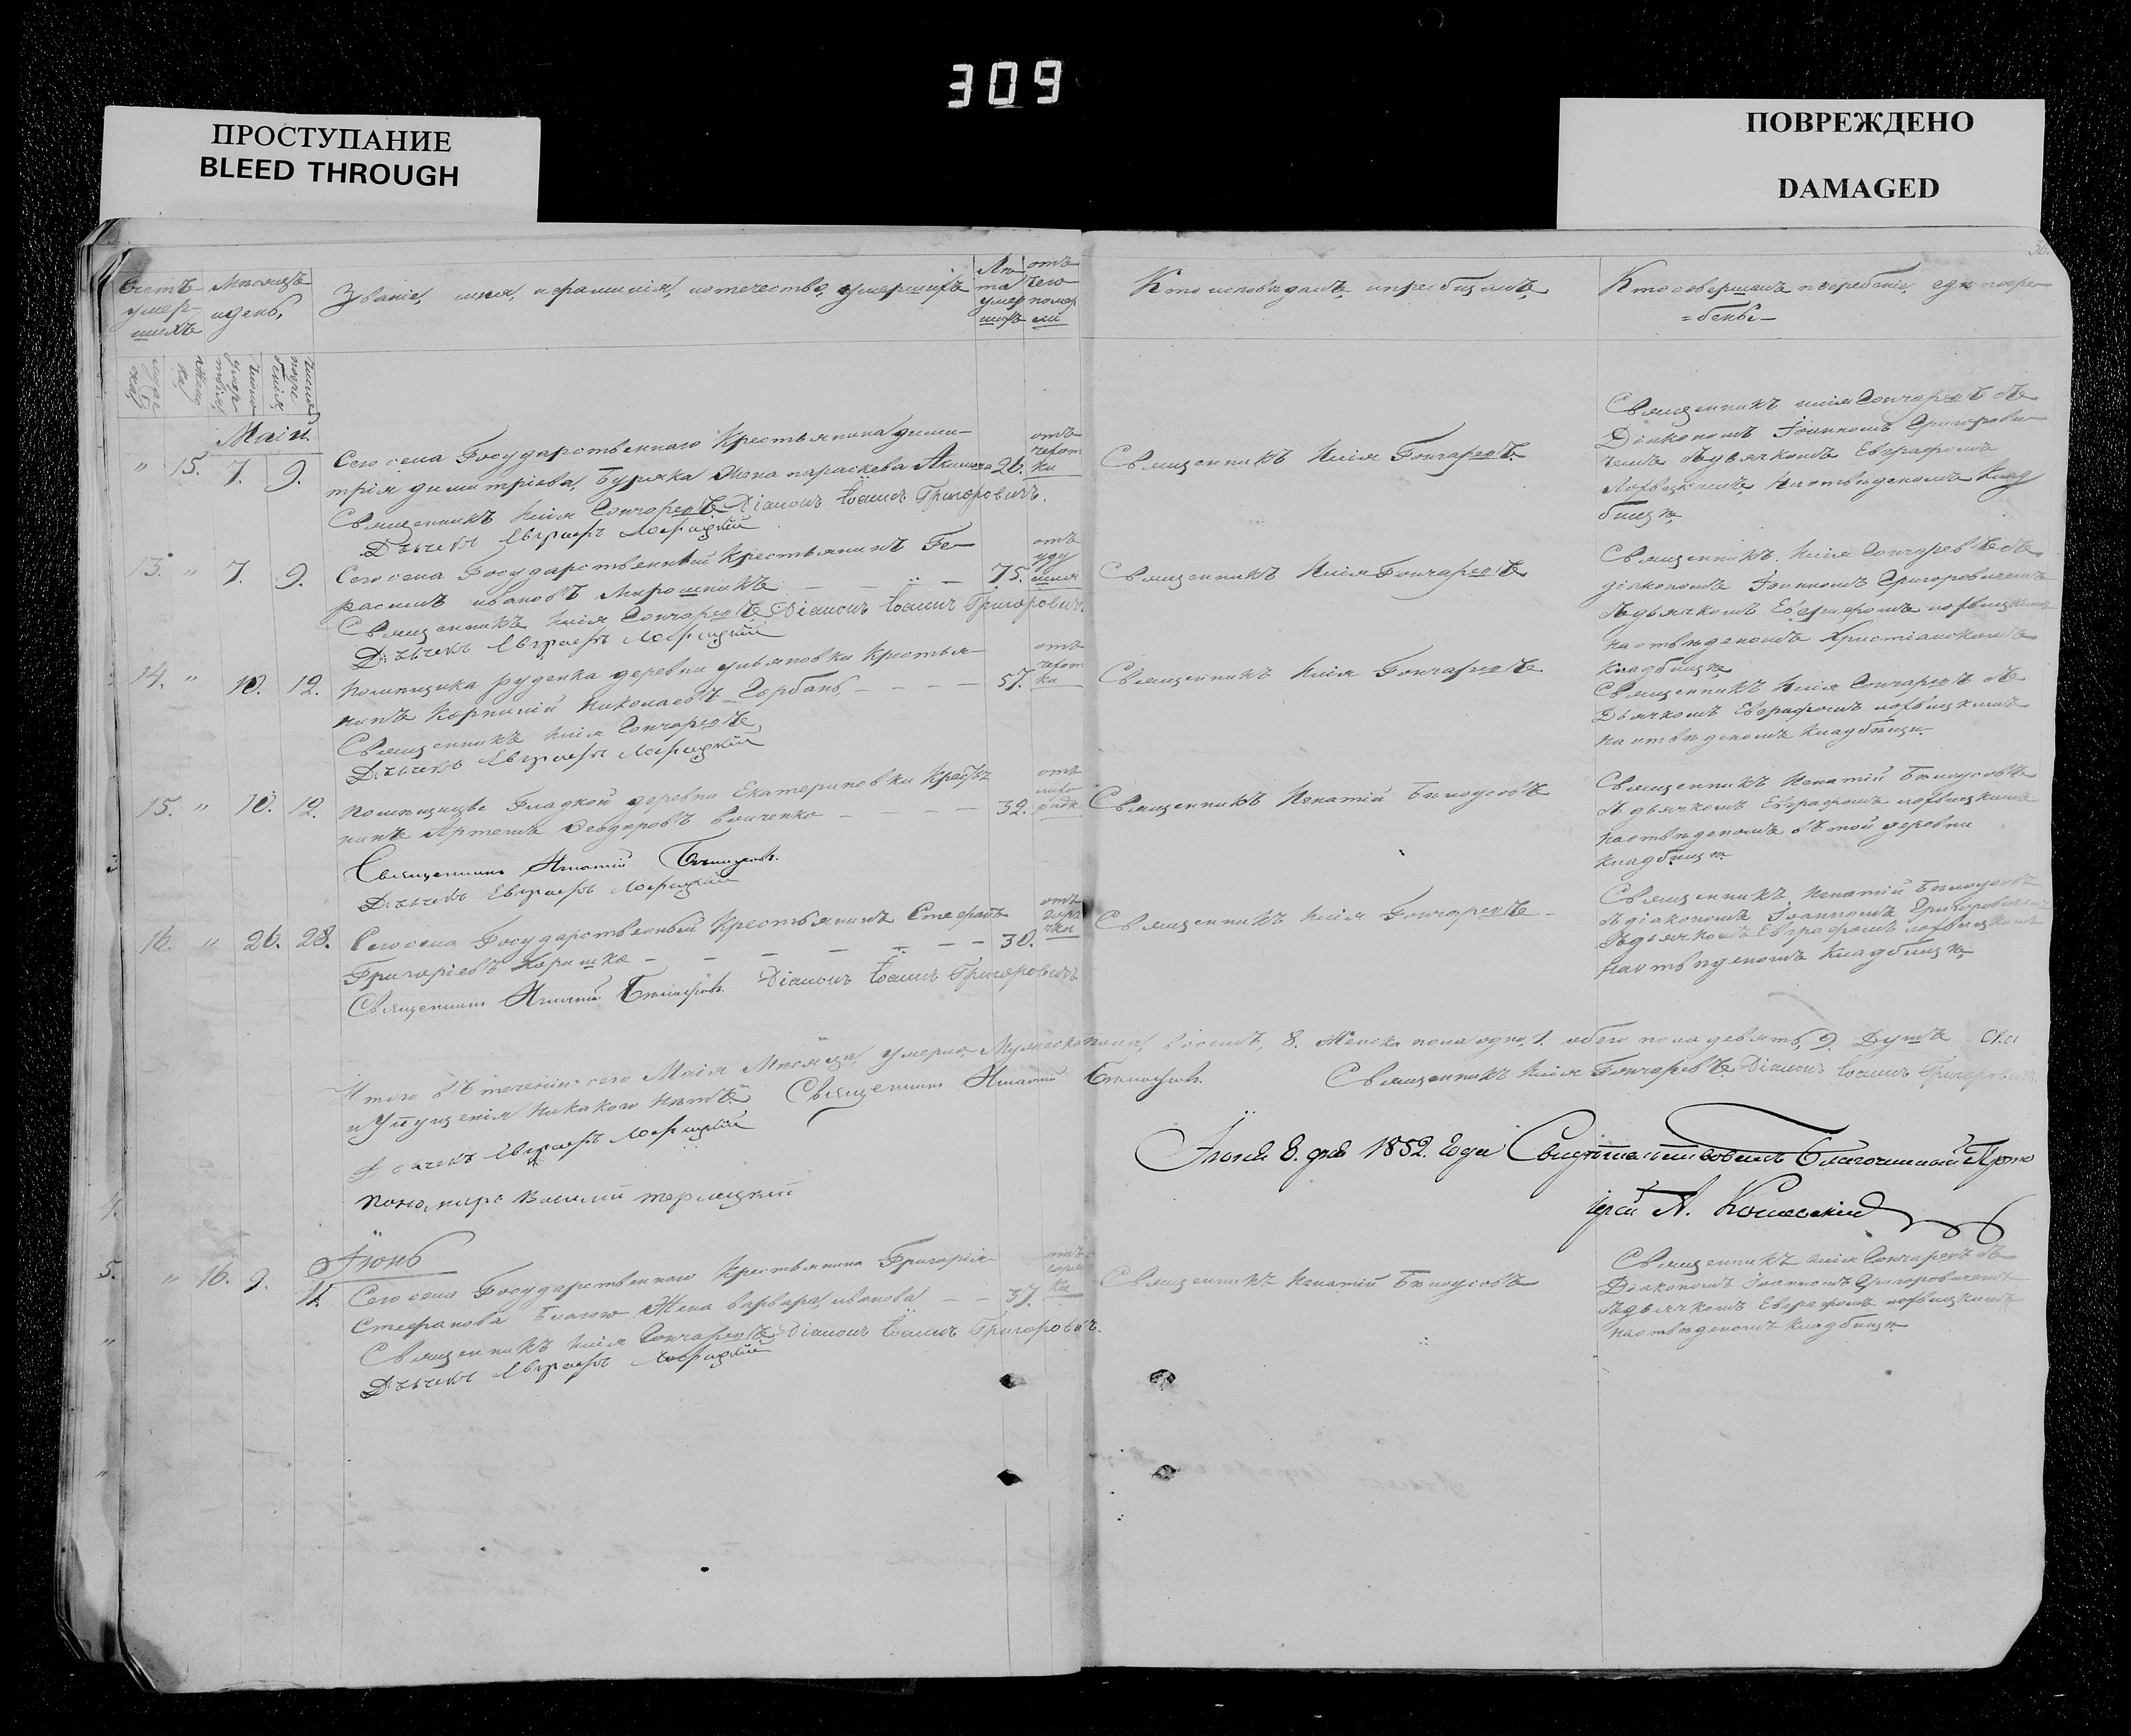 309
ПРОСТУПАНИЕ
BLEED THROUGH
ПОВРЕЖДЕНО
DAMAGED
36.
Счетъ умершихъ
Мѣсяцъ и день,
Званіе, имя, и фамилія, и отечество, умершихъ
Лѣта умершихъ
отъ чего померли
Кто исповѣдалъ, и пріобщалъ,
Кто совершалъ погребеніе, гдѣ погре=
=бены
Маій.
" 15. 7. 9.
Сего села Государственнаго Крестьянина Дими-
трія Димитріева, Буряка Жена Параскева Акимова 26.
отъ чехотки
Священникъ Илія Гончаревъ Діаконъ Іоаннъ Григоровичъ.
Дьячекъ Евграфъ Лофицкій
Священникъ Илія Гончаревъ.
Священникъ Илія Гончаревъ съ
Діакономъ Іоанномъ Григорови-
чемъ Дьячкомъ Евграфомъ
Лофицкимъ, на отведеномъ Клад
бищѣ
13. " 7. 9.
Сего села Государственный Крестьянинъ Ге-
расимъ Ивановъ Мирошникъ 75.
отъ удушия
Священникъ Илія Гончаревъ Діаконъ Іоаннъ Григоровичъ.
Дьячекъ Евграфъ Лофицкій
Священникъ Илія Гончаревъ
Священникъ Илія Гончаревъ съ
діакономъ Іоанномъ Григоровичемъ
дьячкомъ Евграфомъ Лофицкимъ
на отведеномъ Христіанскомъ
Кладбищѣ
14. " 10. 12.
Помѣщика Руденка деревни Ульяновки Крестья-
нинъ Корнилій Николаевъ Горбань 57.
отъ чехотки
Священникъ Илія Гончаревъ
Дьячекъ Евграфъ Лофицкій
Священникъ Илія Гончаревъ
Священникъ Илія Гончаревъ съ
Дьячкомъ Евграфомъ Лофицкимъ
на отведеномъ Кладбищѣ
15. " 10. 12.
Помѣщицы Гладкой деревни Екатериновки Крестья
нинъ Артемъ Феодоровъ 32.
Священникъ Игнатій Бѣлоусовъ.
Дьячекъ Евграфъ Лофицкій
Священникъ Игнатій Бѣлоусовъ
Священникъ Игнатій Бѣлоусовъ
дьячкомъ Евграфомъ Лофицкимъ
на отведеномъ въ той деревни
кладбищѣ
16. " 26. 28.
Сего села Государственный Крестьянинъ Стефанъ
Григоріевъ 30.
отъ горячки
Священникъ Игнатій Бѣлоусовъ. Діаконъ Іоаннъ Григоровичъ
Священникъ Илія Гончаревъ
Священникъ Игнатій Бѣлоусовъ
діакономъ Іоанномъ Григоровичемъ
дьячкомъ Евграфомъ Лофицкимъ
на отведеномъ Кладбищѣ
Итого въ теченіи сего Маія Мѣсяца, умерло, Мужеска пола, восемъ, 8. Женска пола одна, 1. обего пола девять, 9. Душъ
и упущенія никакого нѣтъ. Священникъ Игнатій Бѣлоусовъ. Священникъ Илія Гончаревъ. Діаконъ Іоаннъ Григоровичъ.
Дьячекъ Евграфъ Лофицкій
Пономарь Василий Терлецкий
Іюня 8. дня 1852. года Свидѣтельствовалъ Благочинный Прото
іерей А.
Іюнь
" 16. 9. 11.
Сего села Государственнаго Крестьянина Григорія
Стефанова Бѣлого Жена Варвара, Иванова 37.
Священникъ Илія Гончаревъ Діаконъ Іоаннъ Григоровичъ.
Дьячекъ Евграфъ Лофицкій
Священникъ Игнатій Бѣлоусовъ
Священникъ Илія Гончаревъ съ
Діакономъ Іоанномъ Григоровичемъ
дьячкомъ Евграфомъ Лофицкимъ
на отведеномъ кладбищѣ